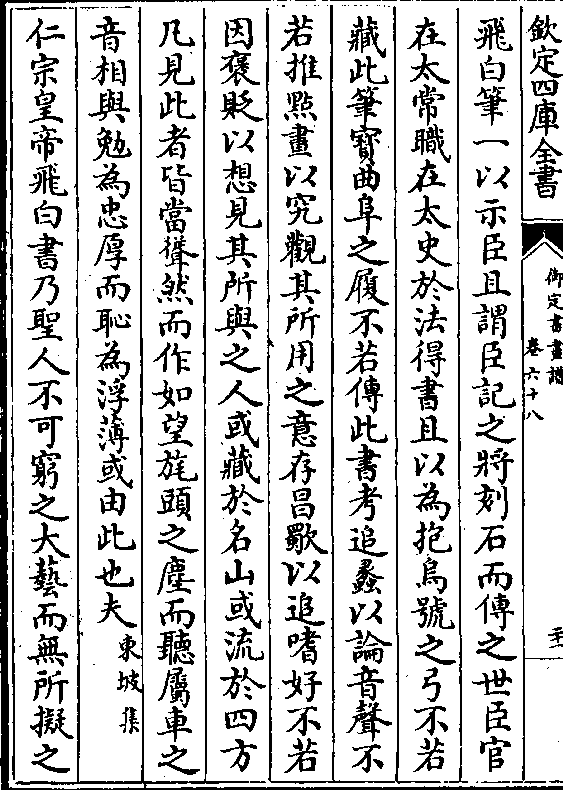 欽定四庫全書
御定書畫譜
卷六十八
二十一
飛白筆一以示臣且謂臣記之將刻石而傳之世臣官
在太常職在太史於法得書且以為抱烏號之弓不若
藏此筆寳曲阜之履不若傳此書考追蠡以論音聲不
若推㸃畫以究觀其所用之意存昌歜以追嗜好不若
因褒貶以想見其所與之人或藏於名山或流於四方
凡見此者皆當聳然而作如望旄頭之塵而聽屬車之
音相與勉為忠厚而恥為浮薄或由此也夫 東坡集
仁宗皇帝飛白書乃聖人不可窮之大藝而無所擬之